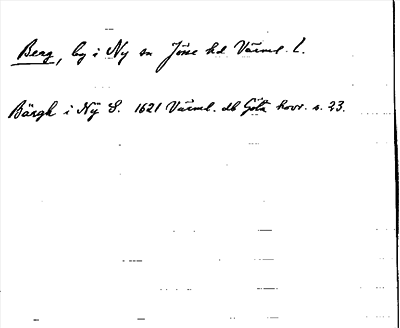 Berg, by i Ny sn Jösse hd Värml. l.
Bärgh i Ny S. 1621 Värml. db Göta hovr. s. 23.